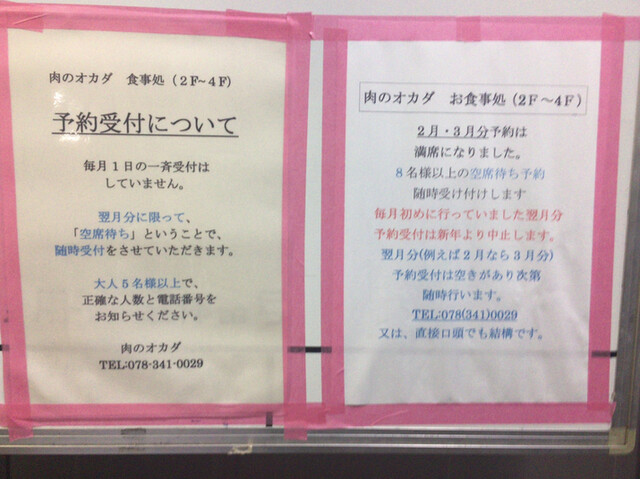 肉のオカダ 食事処(2F~4F)
予約受付について
毎月1日の一斉受付は
していません。
翌月分に限って、
「空席待ち」ということで、
随時受付をさせていただきます。
大人5名様以上で、
正確な人数と電話番号を
お知らせください。
肉のオカダ
TEL:078-341-0029
肉のオカダ お食事処(2F~4F)
2月・3月分予約は
満席になりました。
8名様以上の空席待ち予約
随時受け付けします
毎月初めに行っていました翌月分
予約受付は新年より中止します。
翌月分(例えば2月なら3月分)
予約受付は空きがあり次第
随時行います。
TEL:078(341)0029
又は、直接口頭でも結構です。